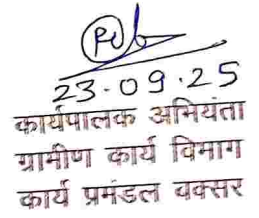 23.09.25
कार्यपालक अभियंता
ग्रामीण कार्य विभाग
कार्य प्रमंडल बक्सर